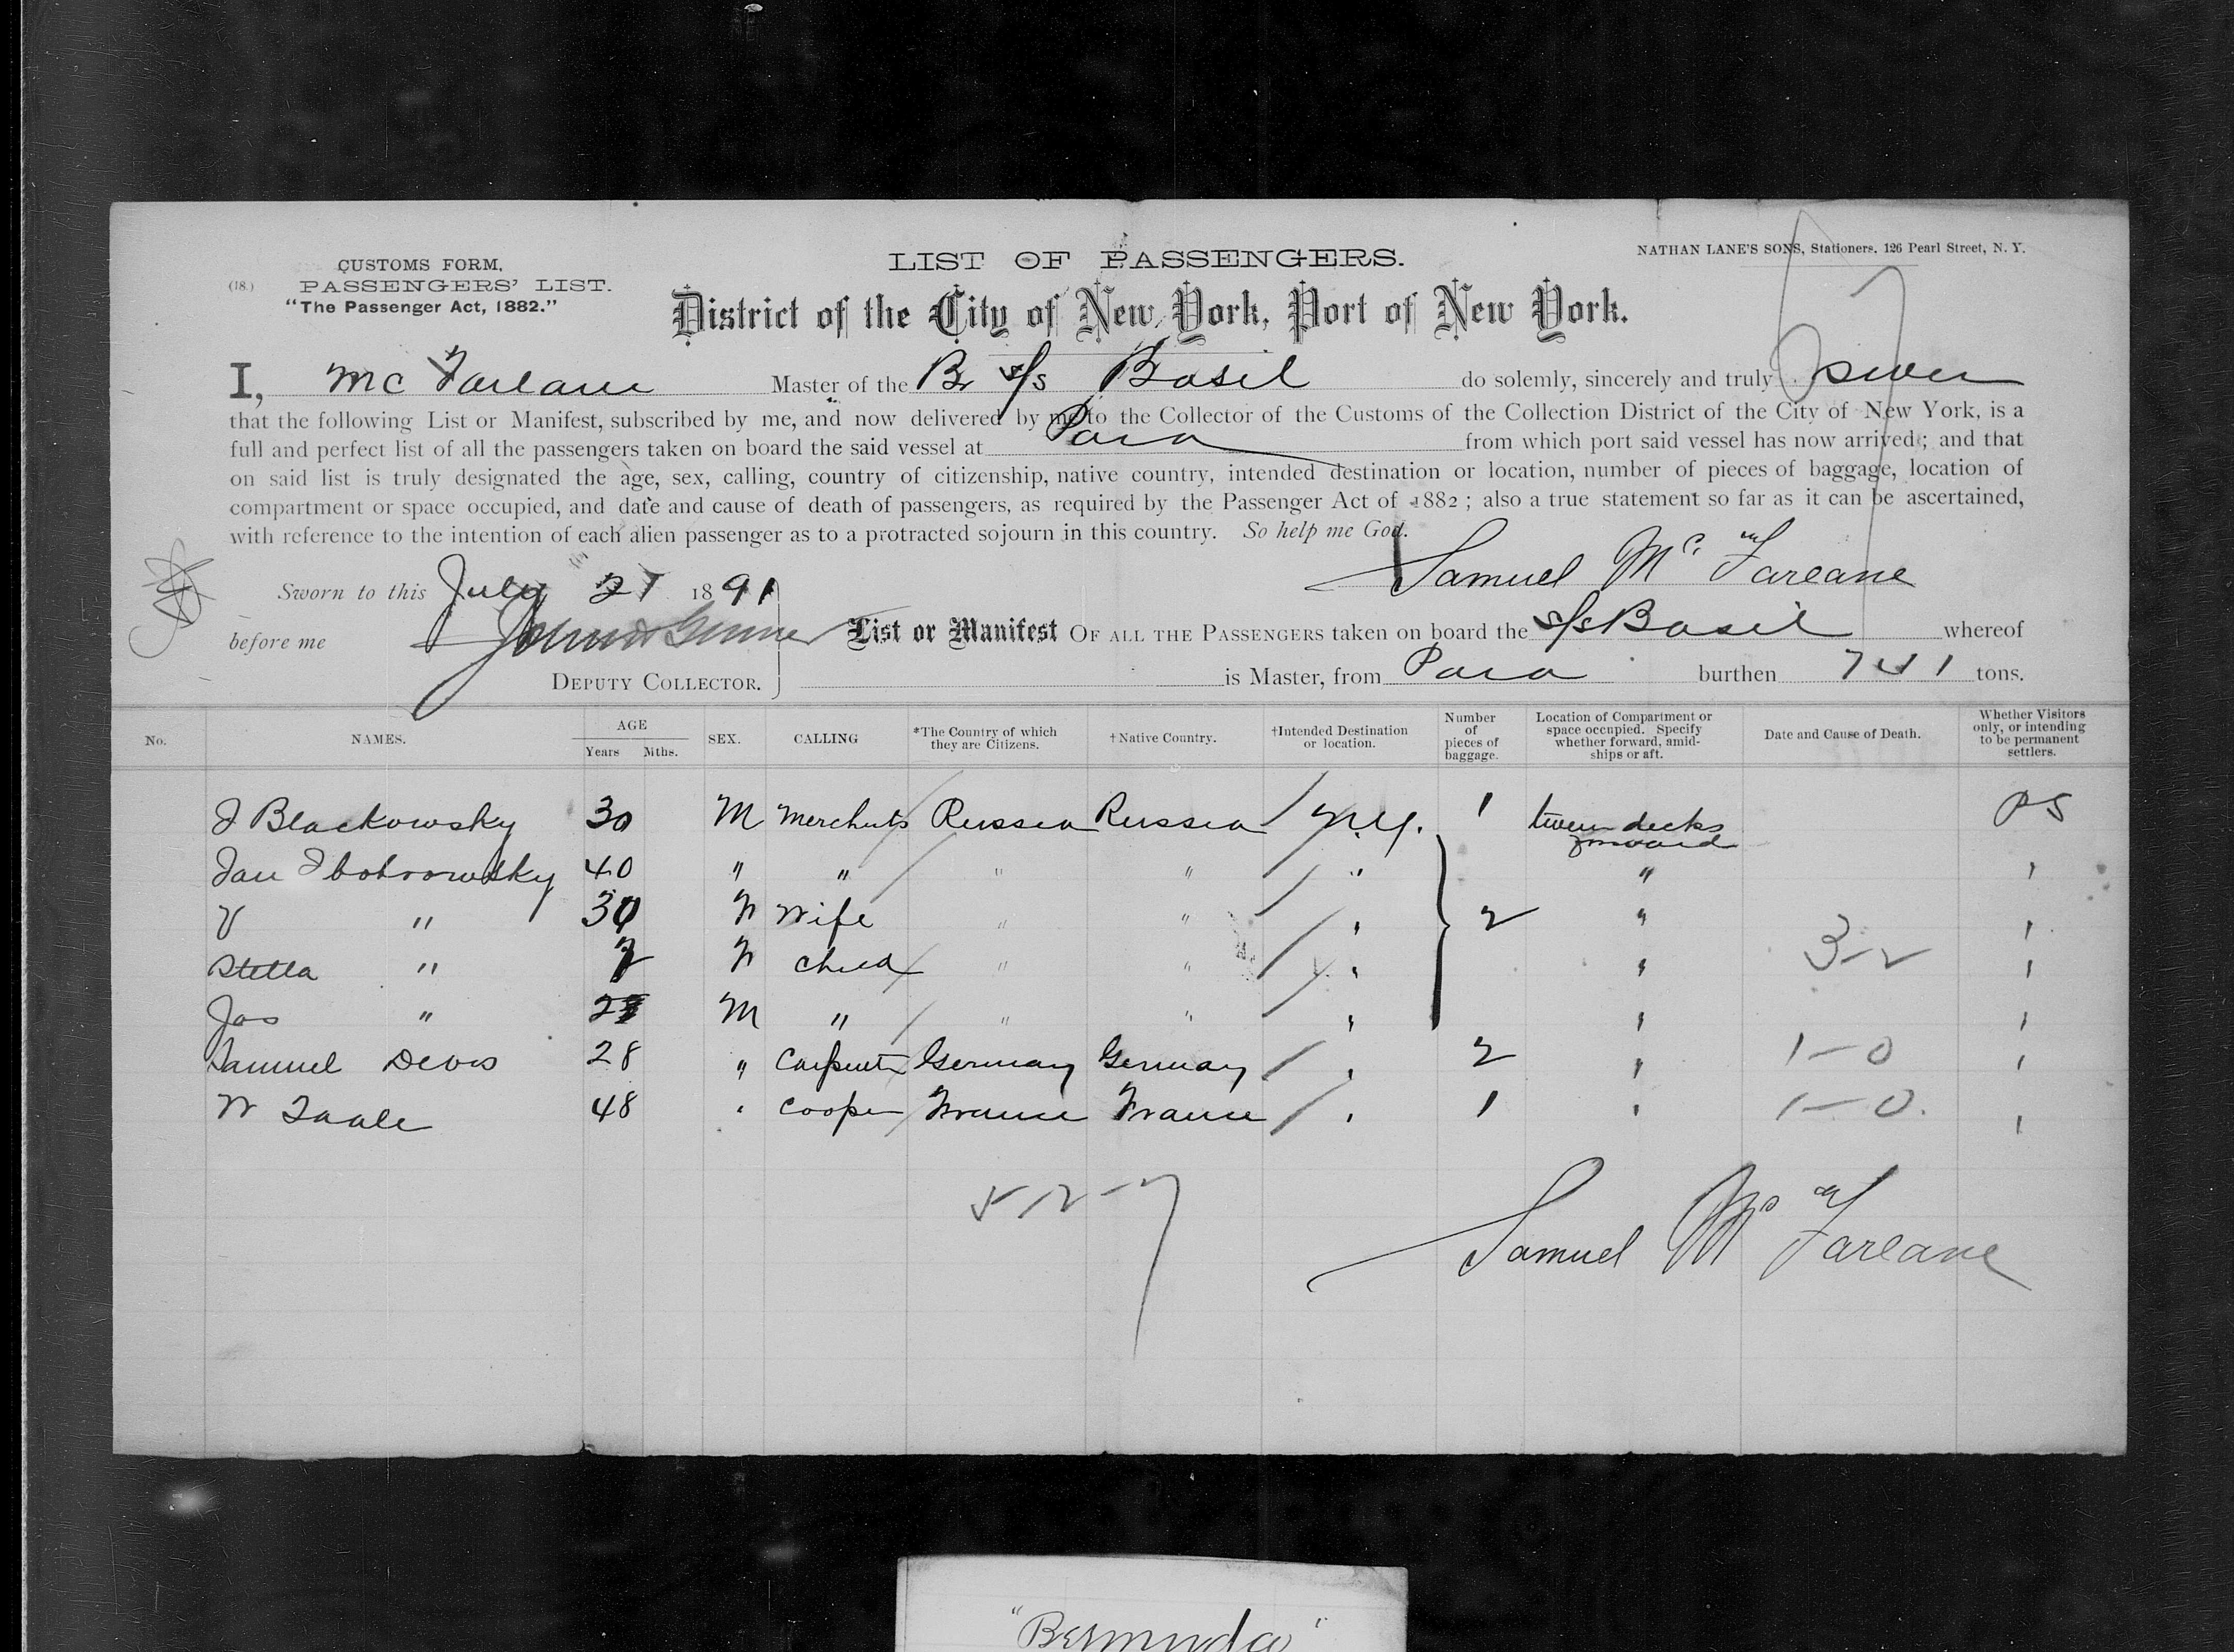 CUSTOMS FORM,
(18.) PASSENGERS' LIST.
"The Passenger Act, 1882."
LIST OF PASSENGERS.
NATHAN LANE'S SONS, Stationers, 126 Pearl Street, N. Y.
District of the City of New York, Port of New York.
I, Mc Farlane Master of the Br s/s Basil do solemnly, sincerely and truly swear
that the following List or Manifest, subscribed by me, and now delivered by me to the Collector of the Customs of the Collection District of the City of New York, is a
full and perfect list of all the passengers taken on board the said vessel at Para from which port said vessel has now arrived; and that
on said list is truly designated the age, sex, calling, country of citizenship, native country, intended destination or location, number of pieces of baggage, location of
compartment or space occupied, and date and cause of death of passengers, as required by the Passenger Act of 1882; also a true statement so far as it can be ascertained,
with reference to the intention of each alien passenger as to a protracted sojourn in this country. So help me God.
Sworn to this July 21 1891 Samuel Mc Farlane
before me List or Manifest OF ALL THE PASSENGERS taken on board the s/s Basil whereof
DEPUTY COLLECTOR. is Master, from Para burthen 741 tons.
No. NAMES. AGE Years Mths. SEX. CALLING *The Country of which they are Citizens. †Native Country. †Intended Destination or location. Number of pieces of baggage. Location of Compartment or space occupied. Specify whether forward, amidships or aft. Date and Cause of Death. Whether Visitors only, or intending to be permanent settlers.
J Blackowsky 30 M Merchnts Russia Russia N.Y. 1 tween decks forward PS
Jan 40 " " " " " "
V " 30 F Wife " " " 2 "
Stella " F Child " " " " 3-2
Jas " M " " " " "
Samuel Devos 28 " Carpenter Germany Germany " 2 " 1-0
W 48 " Cooper France France " 1 " 1-0.
5-2-7
Samuel Mc Farlane
"Bermuda"